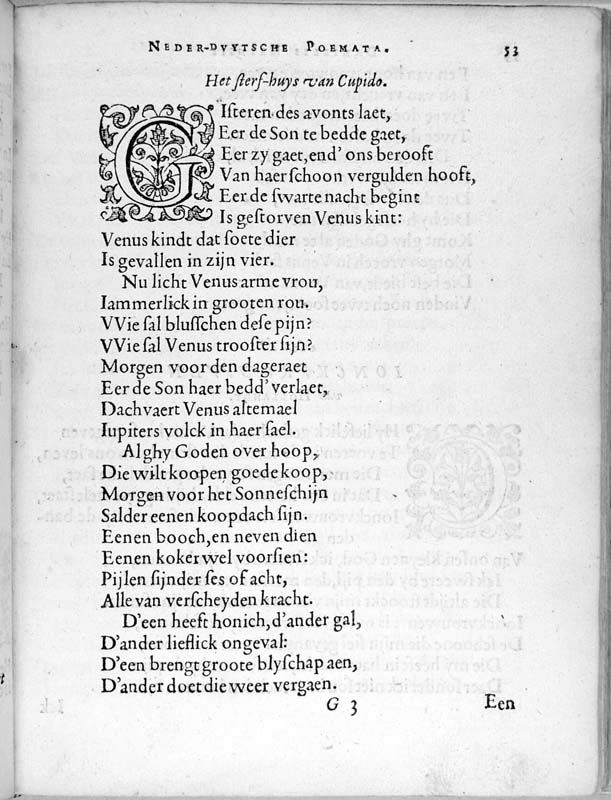 NEDER-DVYTSCHE POEMATA. 53
Het sterf-huys van Cupido.
GIsteren des avonts laet,
Eer de Son te bedde gaet,
Eer zy gaet, end' ons berooft
Van haer schoon vergulden hooft,
Eer de swarte nacht begint
Is gestorven Venus kint:
Venus kindt dat soete dier
Is gevallen in zijn vier.
Nu licht Venus arme vrou,
Iammerlick in grooten rou.
VVie sal blusschen dese pijn?
VVie sal Venus trooster sijn?
Morgen voor den dageraet
Eer de Son haer bedd' verlaet,
Dachvaert Venus altemael
Iupiters volck in haer sael.
Al ghy Goden over hoop,
Die wilt koopen goede koop,
Morgen voor het Sonneschijn
Salder eenen koopdach sijn.
Eenen booch, en neven dien
Eenen koker wel voorsien:
Pijlen sijnder ses of acht,
Alle van verscheyden kracht.
D'een heeft honich, d'ander gal,
D'ander lieflick ongeval:
D'een brengt groote blyschap aen,
D'ander doet die weer vergaen.
G 3 Een